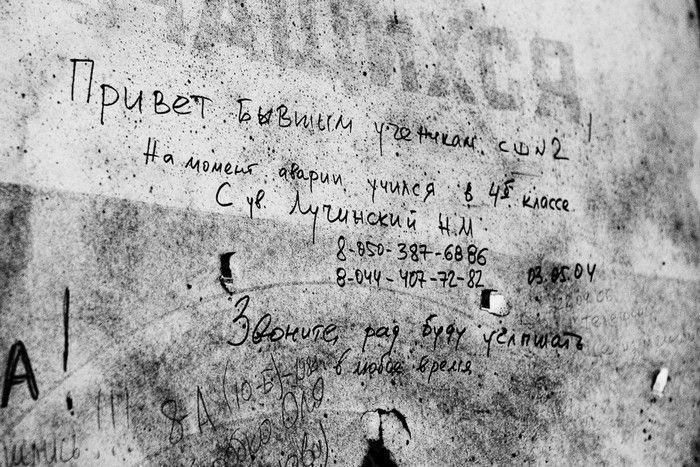 ЧАЩИХСЯ
Привет бывшым ученикам СШN2!
На момент аварии учился в 4 классе.
С ув. Лучинский Н.М.
8-050-387-6886
8-044-407-72-82 03.05.04
Звоните, рад буду услышать
в любое время
А!
8-А (10-Б)